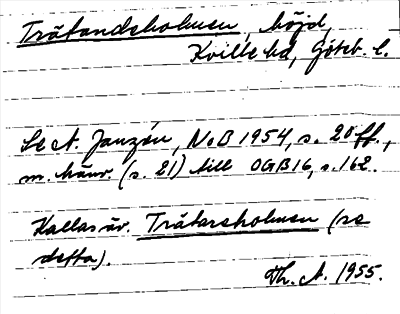 Trätandsholmen, höjd,
Kville hd, Göteb. l.
Se A. Janzén, NoB 1954, s. 20 ff.,
m. hänv. (s. 21) till OGB 16, s. 162.
Kallas äv. Trätarsholmen (se
detta).
Th. A. 1955.